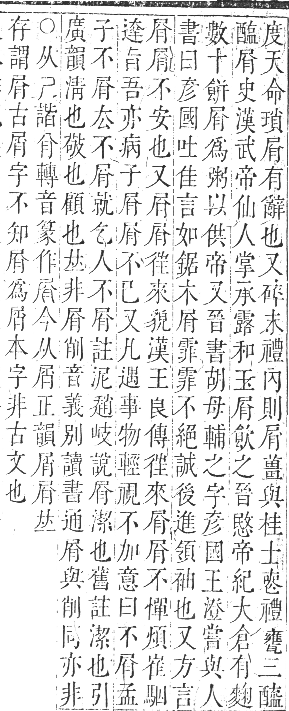 度天命瑣屑有辭也又碎末禮內則屑薑與桂士喪禮甕三醯
醢屑史漢武帝仙人掌承露和玉屑飲之晉愍帝紀大倉有麴
數十餠屑爲粥以供帝又晉書胡母輔之字彥國王澄嘗與人
書曰彥國吐佳言如鋸木屑霏霏不絕誠後進領袖也又方言
屑屑不安也又屑屑徃來貌漢王良傳徃來屑屑不憚煩崔駰
達旨吾亦病子屑屑不已又凡遇事物輕視不加意曰不屑孟
子不屑去不屑就乞人不屑註泥趙岐說屑潔也舊註潔也引
廣韻淸也破也顧也𠀤非屑削音義別讀書通屑與削同亦非
○从尸諧肖轉音篆作㞕今从屑正韻屑㞕𠀤
存謂㞕古屑字不知㞕爲屑本字非古文也